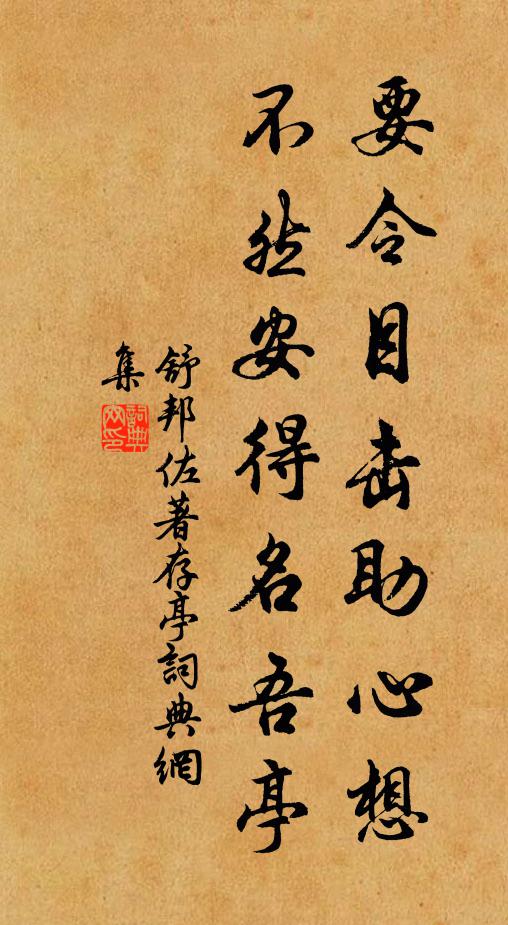 要令目击助心想
不然安得名吾亭
舒邦佐著存亭詞典網
集
詞典網印